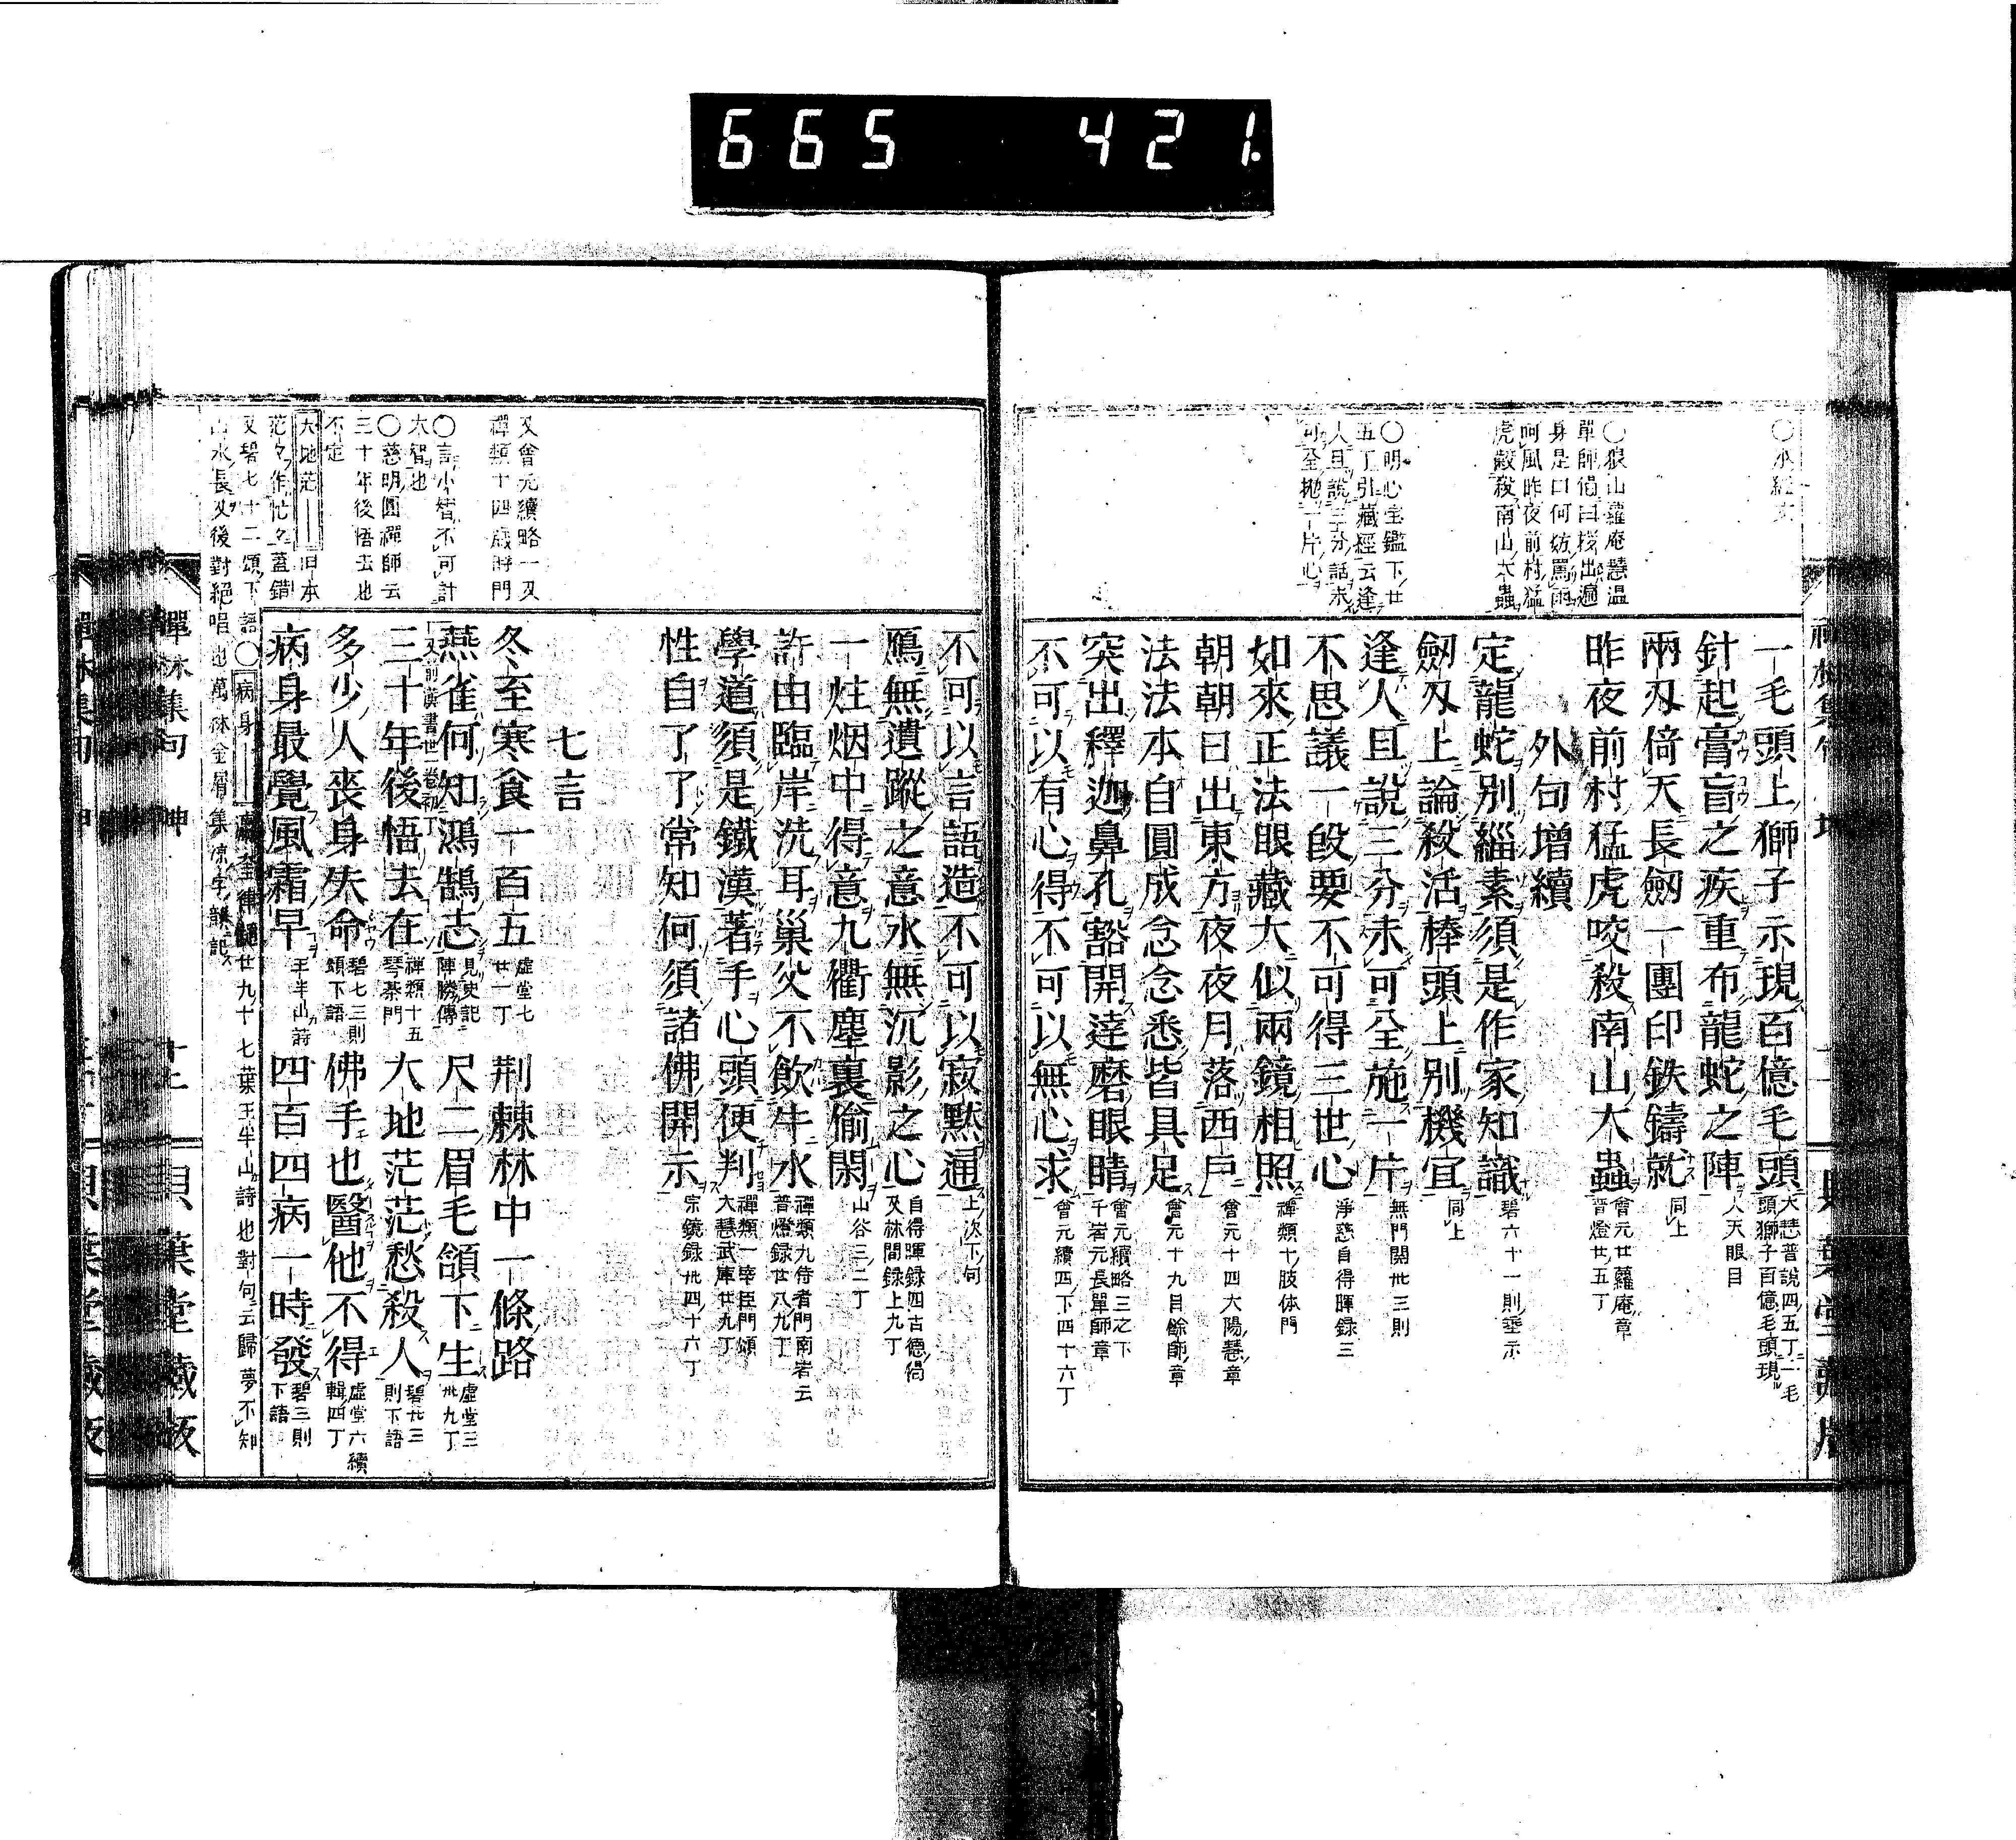 665 421.
狼山蘿庵慧温
身是口何妨罵雨
呵風昨夜前村猛
虎齩殺南山大蟲
〇明心宝鑑下廿
五丁引藏經云逢
人且說三分話未
可全抛一片心
一毛頭上獅子示現百億毛頭 大慧普說四五丁一毛頭獅子百億毛頭現
針起膏盲之疾重布龍蛇之陣 人天眼目
兩刃倚天長劔一團印鉄鑄就 同上
昨夜前村猛虎咬殺南山大蟲 會元廿蘿庵章普燈廿五丁
外句增續
定龍蛇別緇素須是作家知識 碧六十一則垂示
劔刃上論殺活棒頭上別機宜 同上
逢人且說三分未可全施一片 無門關卅三則
不思議一段要不可得三世心 淨慈自得暉録三
如來正法眼藏大似兩鏡相照 禪類十肢体門
朝朝日出東方夜夜月落西戶 會元十四大陽慧章
法法本自圓成念念悉皆具足 會元十九目餘師章
突出釋迦鼻孔豁開達磨眼睛 會元續略三之下千岩元長單師章
不可以有心得不可以無心求 會元續四下四十六丁
又曾元續略一又
禪類十四歲時門
〇言小智不可計
大智也
〇慈明圓禪師云
三十年後悟去也
不定
大地茫 旧本
茫々作忙々蓋錯
又碧七十二頌下語〇病身
山水長又後對絕唱也
不可以言語造不可以寂黙通 上次下句
鴈無遺蹤之意水無沉影之心 自得暉録四古德偈又林間録上九丁
一炷烟中得意九衢塵裏偷閑 山谷三二丁
許由臨岸洗耳巢父不飲牛水 禪類九侍者門南岩云普燈録廿八九丁
學道須是鐵漢著手心頭便判 禪類一宰臣門頌大慧武庫廿九丁
性自了了常知何須諸佛開示 宗鏡録卅四十六丁
七言
冬至寒食一百五 虚堂七廿一丁 荆棘林中一條路
燕雀何知鴻鵠志 見史記陳勝傳 尺二眉毛頷下生 虚堂三卅九丁
三十年後悟去在 禪類十五琴棊門 大地茫茫愁殺人 碧卅三則下語
多少人喪身失命 碧七三則頌下語 佛手也醫他不得 虚堂六續輯四丁
病身最覺風霜早 王半山詩 四百四病一時發 碧三則下語
廿九十七葉王半山詩也對句云歸夢不知
禪林集句 坤
貝葉堂藏板